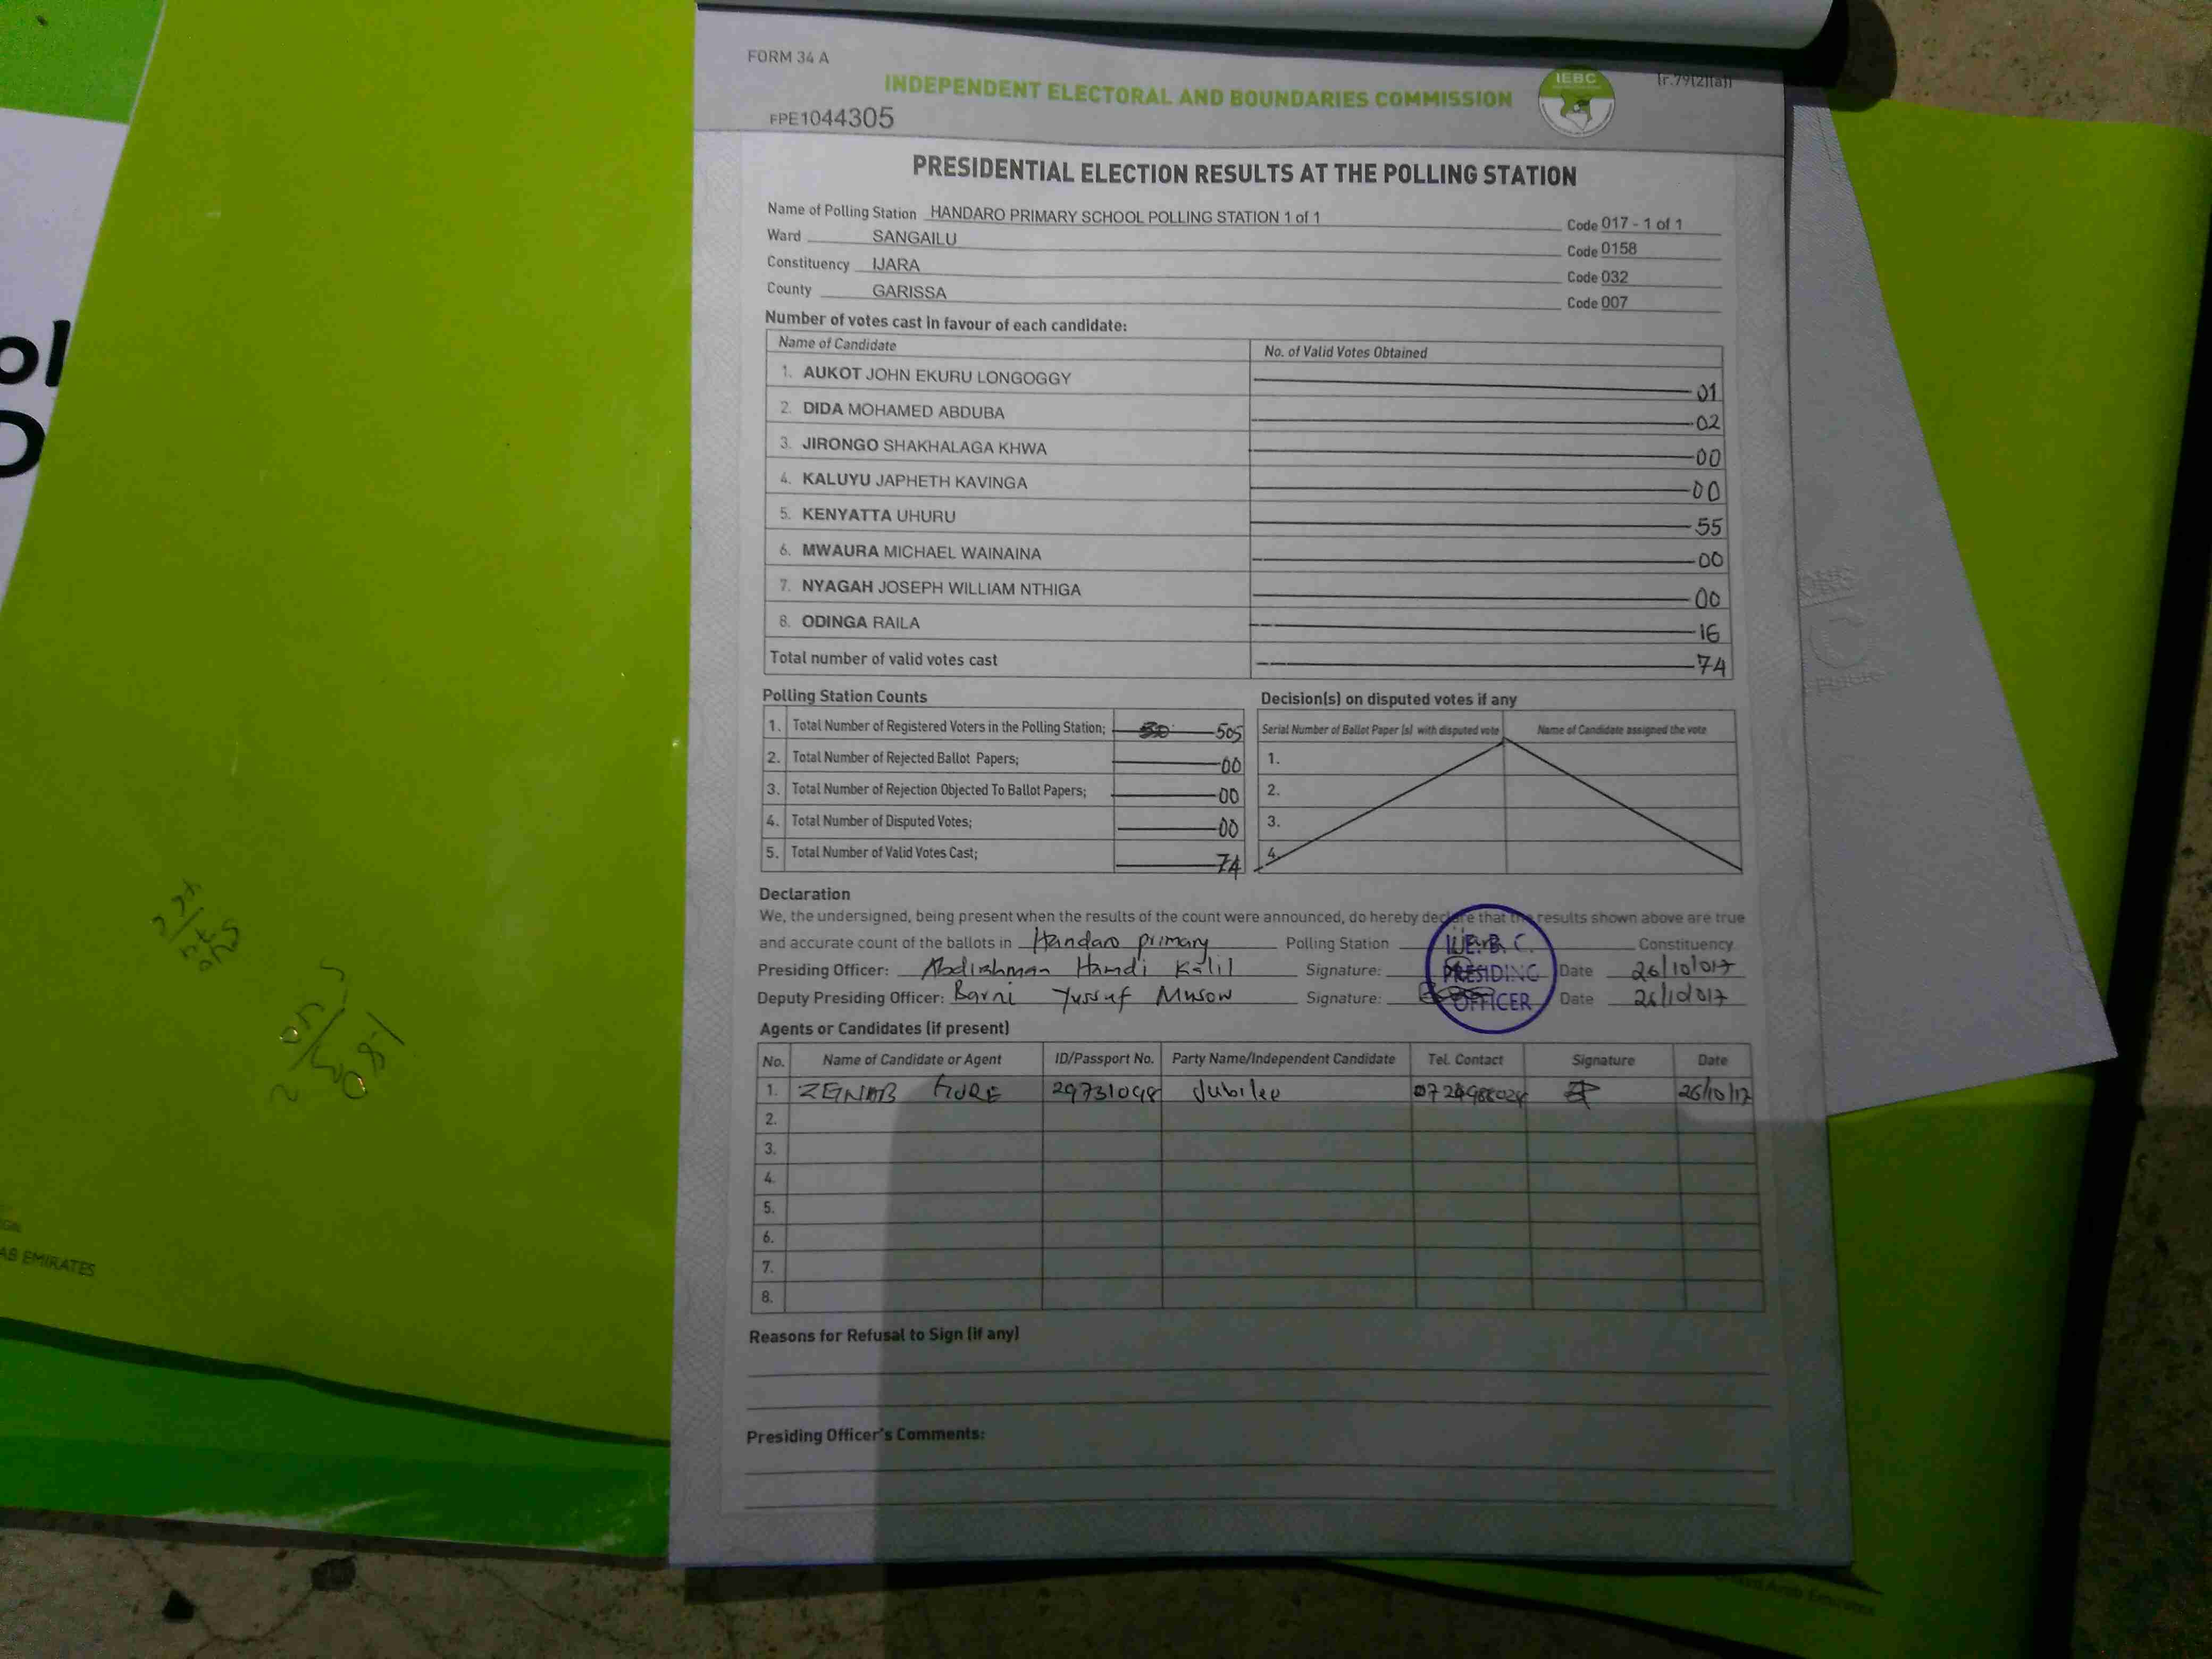 FORM 34 A
[r.79(2)(a)]
INDEPENDENT ELECTORAL AND BOUNDARIES COMMISSION
IEBC
FPE1044305
PRESIDENTIAL ELECTION RESULTS AT THE POLLING STATION
Name of Polling Station HANDARO PRIMARY SCHOOL POLLING STATION 1 of 1 Code 017 - 1 of 1
Ward SANGAILU Code 0158
Constituency IJARA Code 032
County GARISSA Code 007
Number of votes cast in favour of each candidate:
Name of Candidate No. of Valid Votes Obtained
1. AUKOT JOHN EKURU LONGOGGY 01
2. DIDA MOHAMED ABDUBA 02
3. JIRONGO SHAKHALAGA KHWA 00
4. KALUYU JAPHETH KAVINGA 00
5. KENYATTA UHURU 55
6. MWAURA MICHAEL WAINAINA 00
7. NYAGAH JOSEPH WILLIAM NTHIGA 00
8. ODINGA RAILA 16
Total number of valid votes cast 74
Polling Station Counts
1. Total Number of Registered Voters in the Polling Station; 505
2. Total Number of Rejected Ballot Papers; 00
3. Total Number of Rejection Objected To Ballot Papers; 00
4. Total Number of Disputed Votes; 00
5. Total Number of Valid Votes Cast; 74
Decision(s) on disputed votes if any
Serial Number of Ballot Paper (s) with disputed vote Name of Candidate assigned the vote
1.
2.
3.
4.
Declaration
We, the undersigned, being present when the results of the count were announced, do hereby declare that the results shown above are true
and accurate count of the ballots in Handaro primary Polling Station Constituency
Presiding Officer: Abdirahman Hamdi Kalil Signature: Date 26/10/017
Deputy Presiding Officer: Barni Yussuf Musow Signature: Date 26/10/017
I.E.B.C.
PRESIDING
OFFICER
Agents or Candidates (if present)
No. Name of Candidate or Agent ID/Passport No. Party Name/Independent Candidate Tel. Contact Signature Date
1. ZEINAB GURE 29731098 Jubilee 26/10/17
2.
3.
4.
5.
6.
7.
8.
Reasons for Refusal to Sign (if any)
Presiding Officer's Comments:
ol
AB EMIRATES